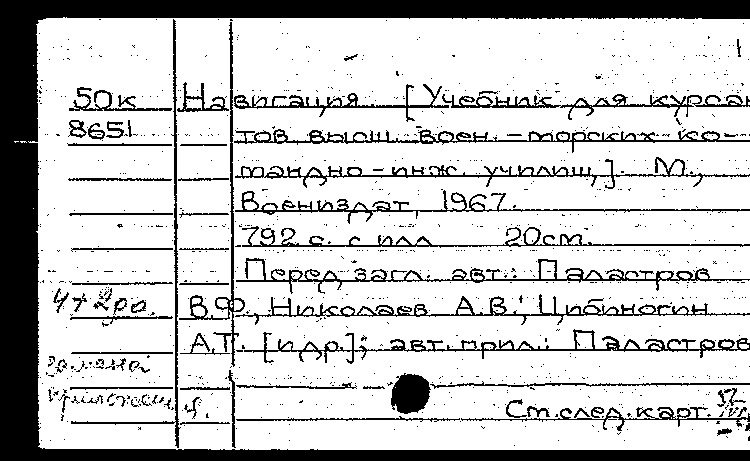 1
50к Навигация. [Учебник для курсан
8651 тов высш. воен.-морских ко-
мандно-инж. училищ,]. М.,
Воениздат, 1967.
792 с. с илл 20см.
Перед загл. авт.: Паластров
4+2до. В.Ф., Николаев А.В., Цибиногин
А.Т. [и др.]; авт. прил.: Паластров
замена
См.след.карт.